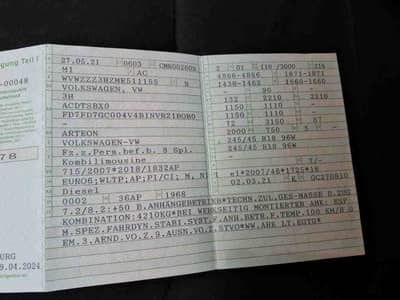 gung Teil I
-00048
78
URG
9.04.2024
27.05.21 0603
M1 AC
WVWZZZ3HZME511155 9
VOLKSWAGEN, VW
3H
ACDTSBX0
ARTEON
VOLKSWAGEN-VW
Fz.z.Pers.bef.b. 8 Spl.
Kombilimousine
715/2007*2018/1832AP
EURO6;WLTP;AP;PI/CI; M, N1
Diesel
0002 36AP 1968
7.2/8.2:+50 B.ANHÄNGEBETRIEB*TECHN.ZUL.GES-MASSE D.ZUG
KOMBINATION:4210KG*DEI WERKSEITIG MONTIERTEM AHK: ESP
M.SPEZ.FAHRDYN.STABI.SYST.F.ANH.BETR.F.TEMP.100 KM/H G
EM.3.AEND.VO.Z.9.AUSN.VO.Z.STVO*WW.AHK LT.EGTG*
2 01 110 /3000 218
4866-4866 1871-1871
1439-1462 1560-1560
- 90 -
132 2210 2210
1150 1110 -
1150 1110 -
72 3150 57
2000 750 5 -
245/45 R18 96W
245/45 R18 96W
-
7/-
e1*2007/46*1725*18
02.03.21 K